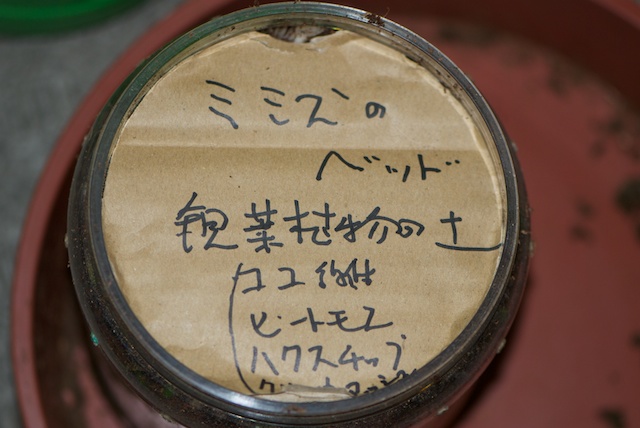 ミミズの
ベッド
観葉植物の土
ココ繊維
ピートモス
ハクスチップ